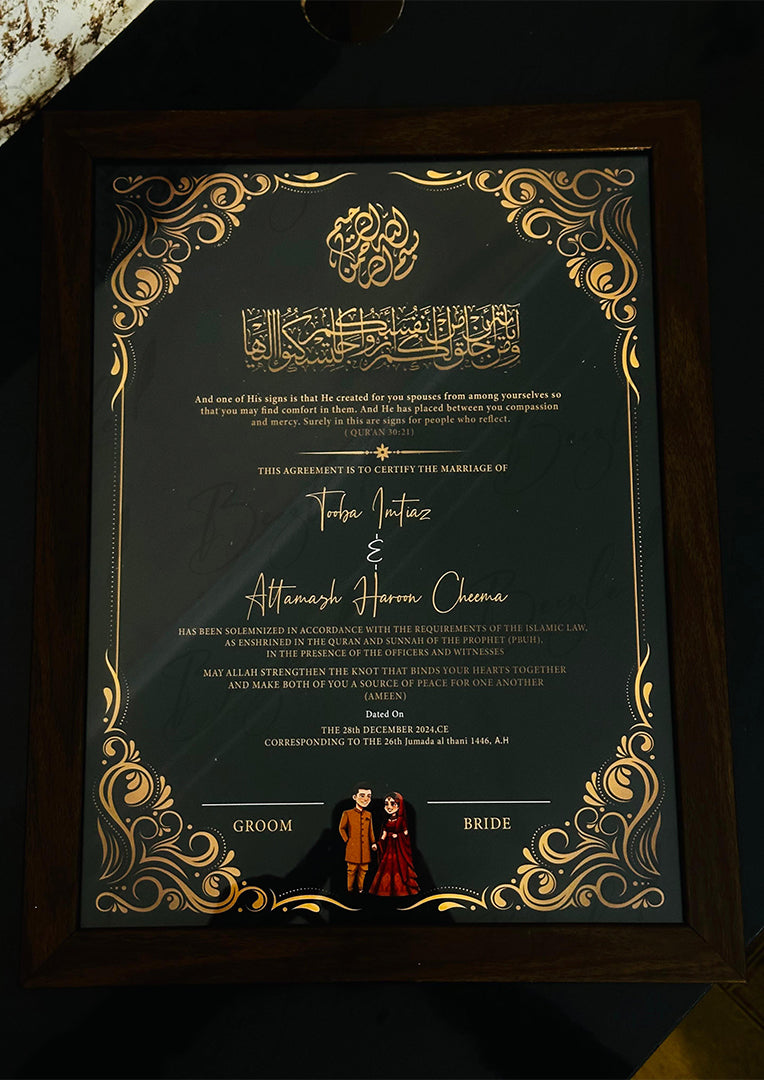 بسم الله الرحمن الرحيم
And one of His signs is that He created for you spouses from among yourselves so
that you may find comfort in them. And He has placed between you compassion
and mercy. Surely in this are signs for people who reflect.
( QUR'AN 30:21)
THIS AGREEMENT IS TO CERTIFY THE MARRIAGE OF
Tooba Imtiaz
&
Altamash Haroon Cheema
HAS BEEN SOLEMNIZED IN ACCORDANCE WITH THE REQUIREMENTS OF THE ISLAMIC LAW,
AS ENSHRINED IN THE QURAN AND SUNNAH OF THE PROPHET (PBUH),
IN THE PRESENCE OF THE OFFICERS AND WITNESSES
MAY ALLAH STRENGTHEN THE KNOT THAT BINDS YOUR HEARTS TOGETHER
AND MAKE BOTH OF YOU A SOURCE OF PEACE FOR ONE ANOTHER
(AMEEN)
Dated On
THE 28th DECEMBER 2024,CE
CORRESPONDING TO THE 26th Jumada al thani 1446, A.H
GROOM
BRIDE